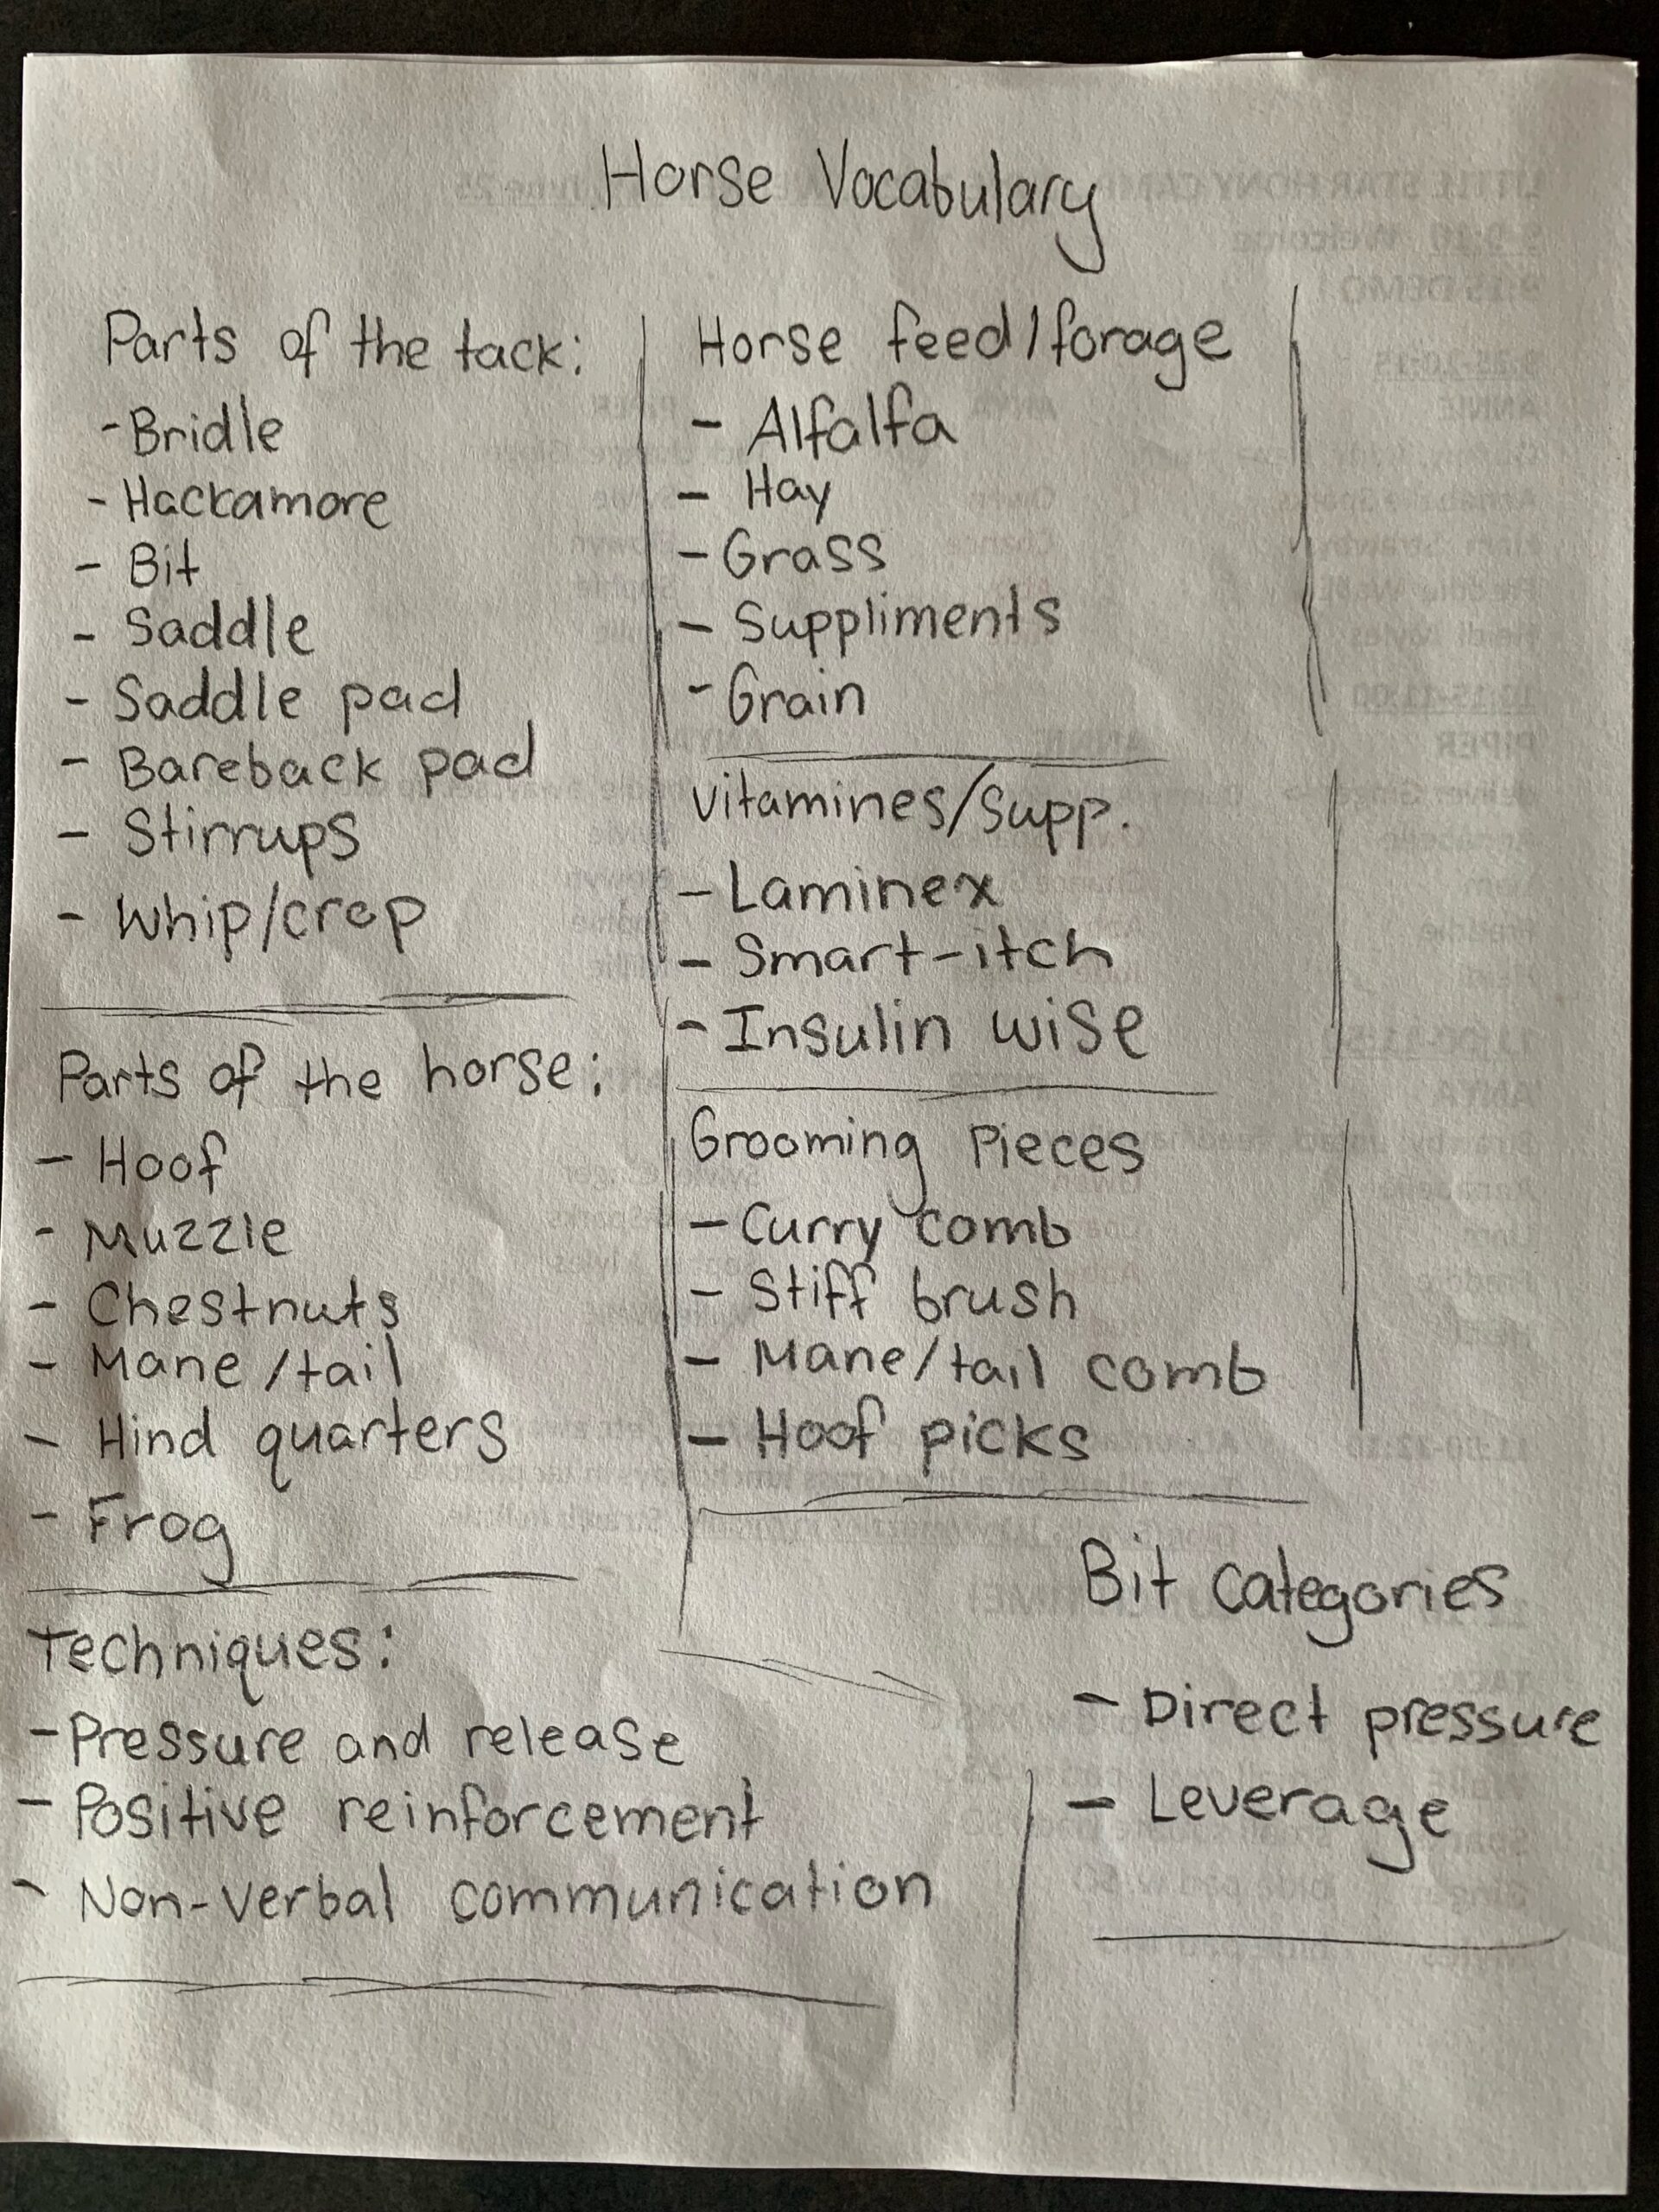 Horse Vocabulary
Parts of the tack:
- Bridle
- Hackamore
- Bit
- Saddle
- Saddle pad
- Bareback pad
- Stirrups
- Whip/crop
Parts of the horse:
- Hoof
- Muzzle
- Chestnuts
- Mane/tail
- Hind quarters
- Frog
Techniques:
- Pressure and release
- Positive reinforcement
- Non-verbal communication
Horse feed/forage
- Alfalfa
- Hay
- Grass
- Suppliments
- Grain
Vitamines/Supp.
- Laminex
- Smart-itch
- Insulin wise
Grooming Pieces
- Curry comb
- Stiff brush
- Mane/tail comb
- Hoof picks
Bit Categories
- Direct pressure
- Leverage